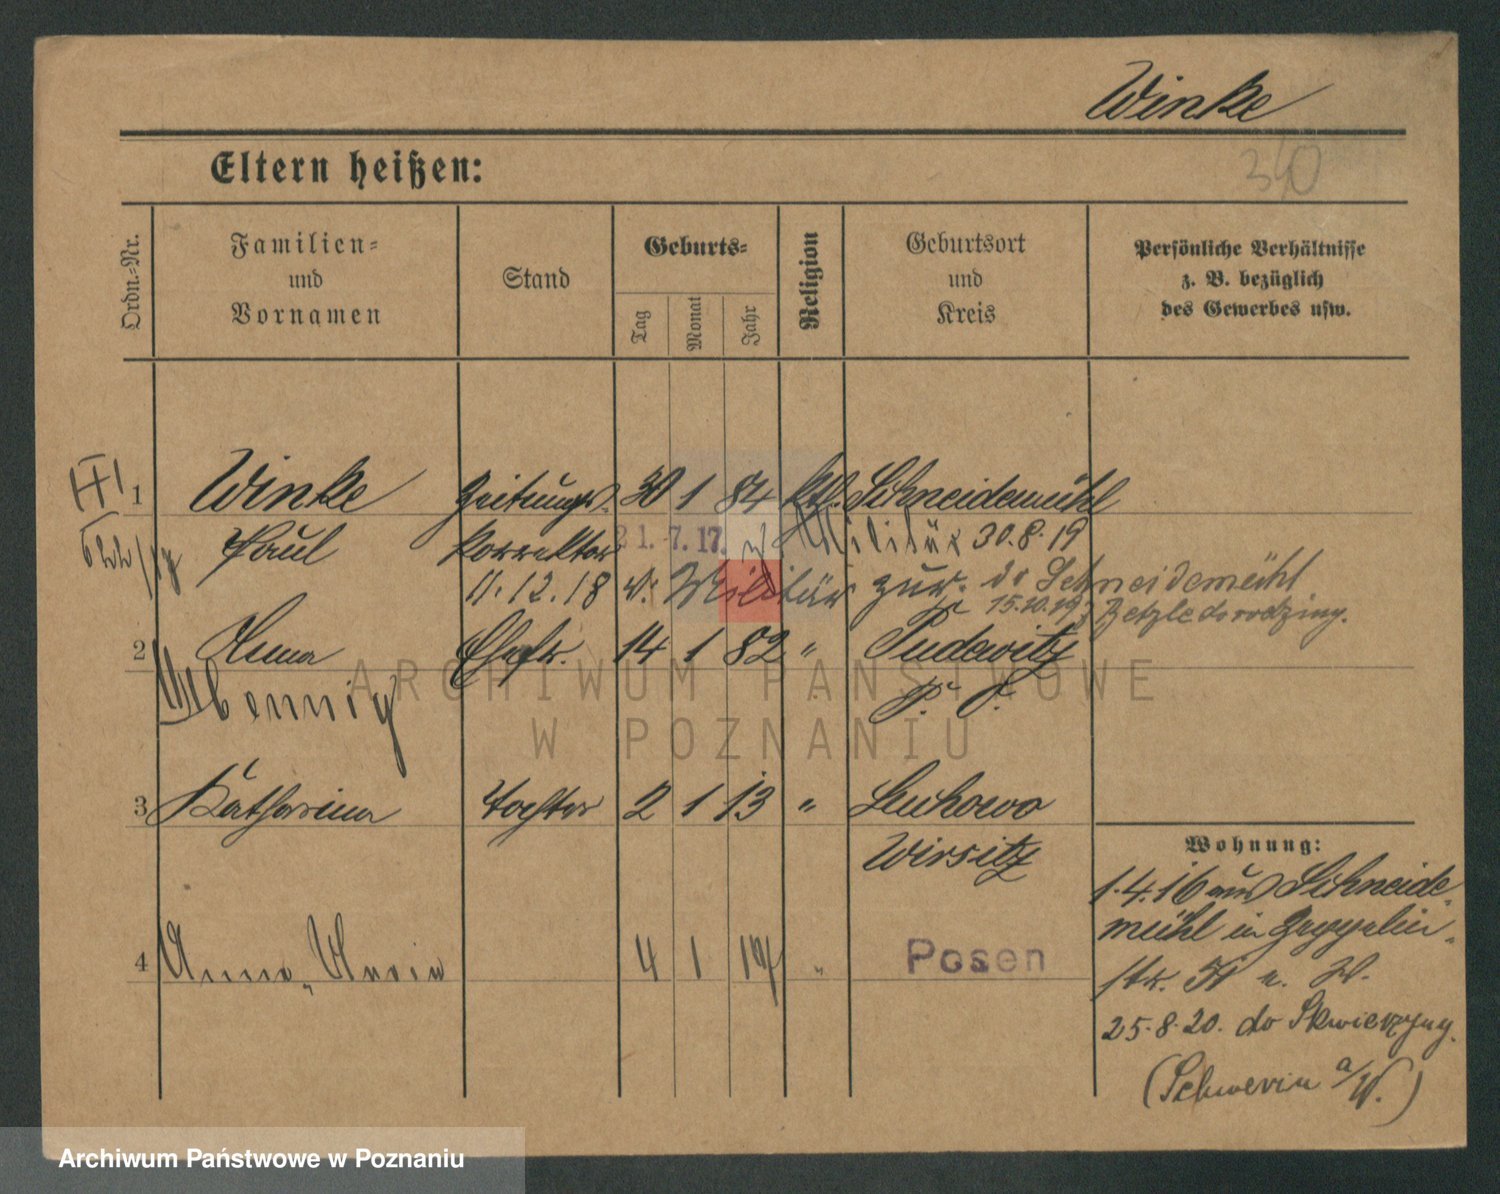 Winke
340
Eltern heißen:
Ordn.-Nr.
Familien- und Vornamen
Stand
Geburts-
Tag
Monat
Jahr
Religion
Geburtsort und Kreis
Persönliche Verhältnisse z. B. bezüglich des Gewerbes usw.
1 Winke Zeitungs- 30 1 84 kth. Schneidemühl
Paul Korrektor 21. 7. 17. z. Militär 30.8.19
11.12.18 v. Militär zur. do Schneidemühl
15.10.19 z Betzle do rodziny.
2 Anna Ehefr. 14 1 82 " Pudewitz
3 Katharina Tochter 2 1 13 " Luchowo
Wirsitz
4 Anna, Maria 4 1 17 " Posen
Wohnung:
1.4.16 aus Schneide-
mühl in Zeppelin-
str.
25.8.20. do Skwierzyny.
(Schwerin a/W.)
ARCHIWUM PAŃSTWOWE
W POZNANIU
Archiwum Państwowe w Poznaniu